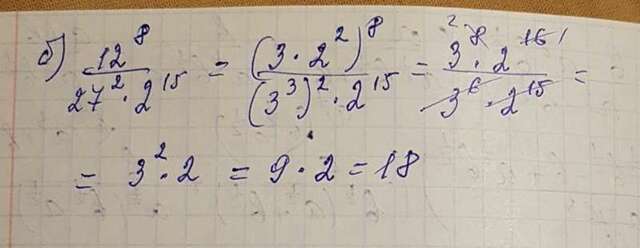 б) 12⁸ / (27² · 2¹⁵) = (3 · 2²)⁸ / ((3³)² · 2¹⁵) = 3⁸ ² · 2¹⁶ ¹ / (3⁶ · 2¹⁵) =
= 3² · 2 = 9 · 2 = 18